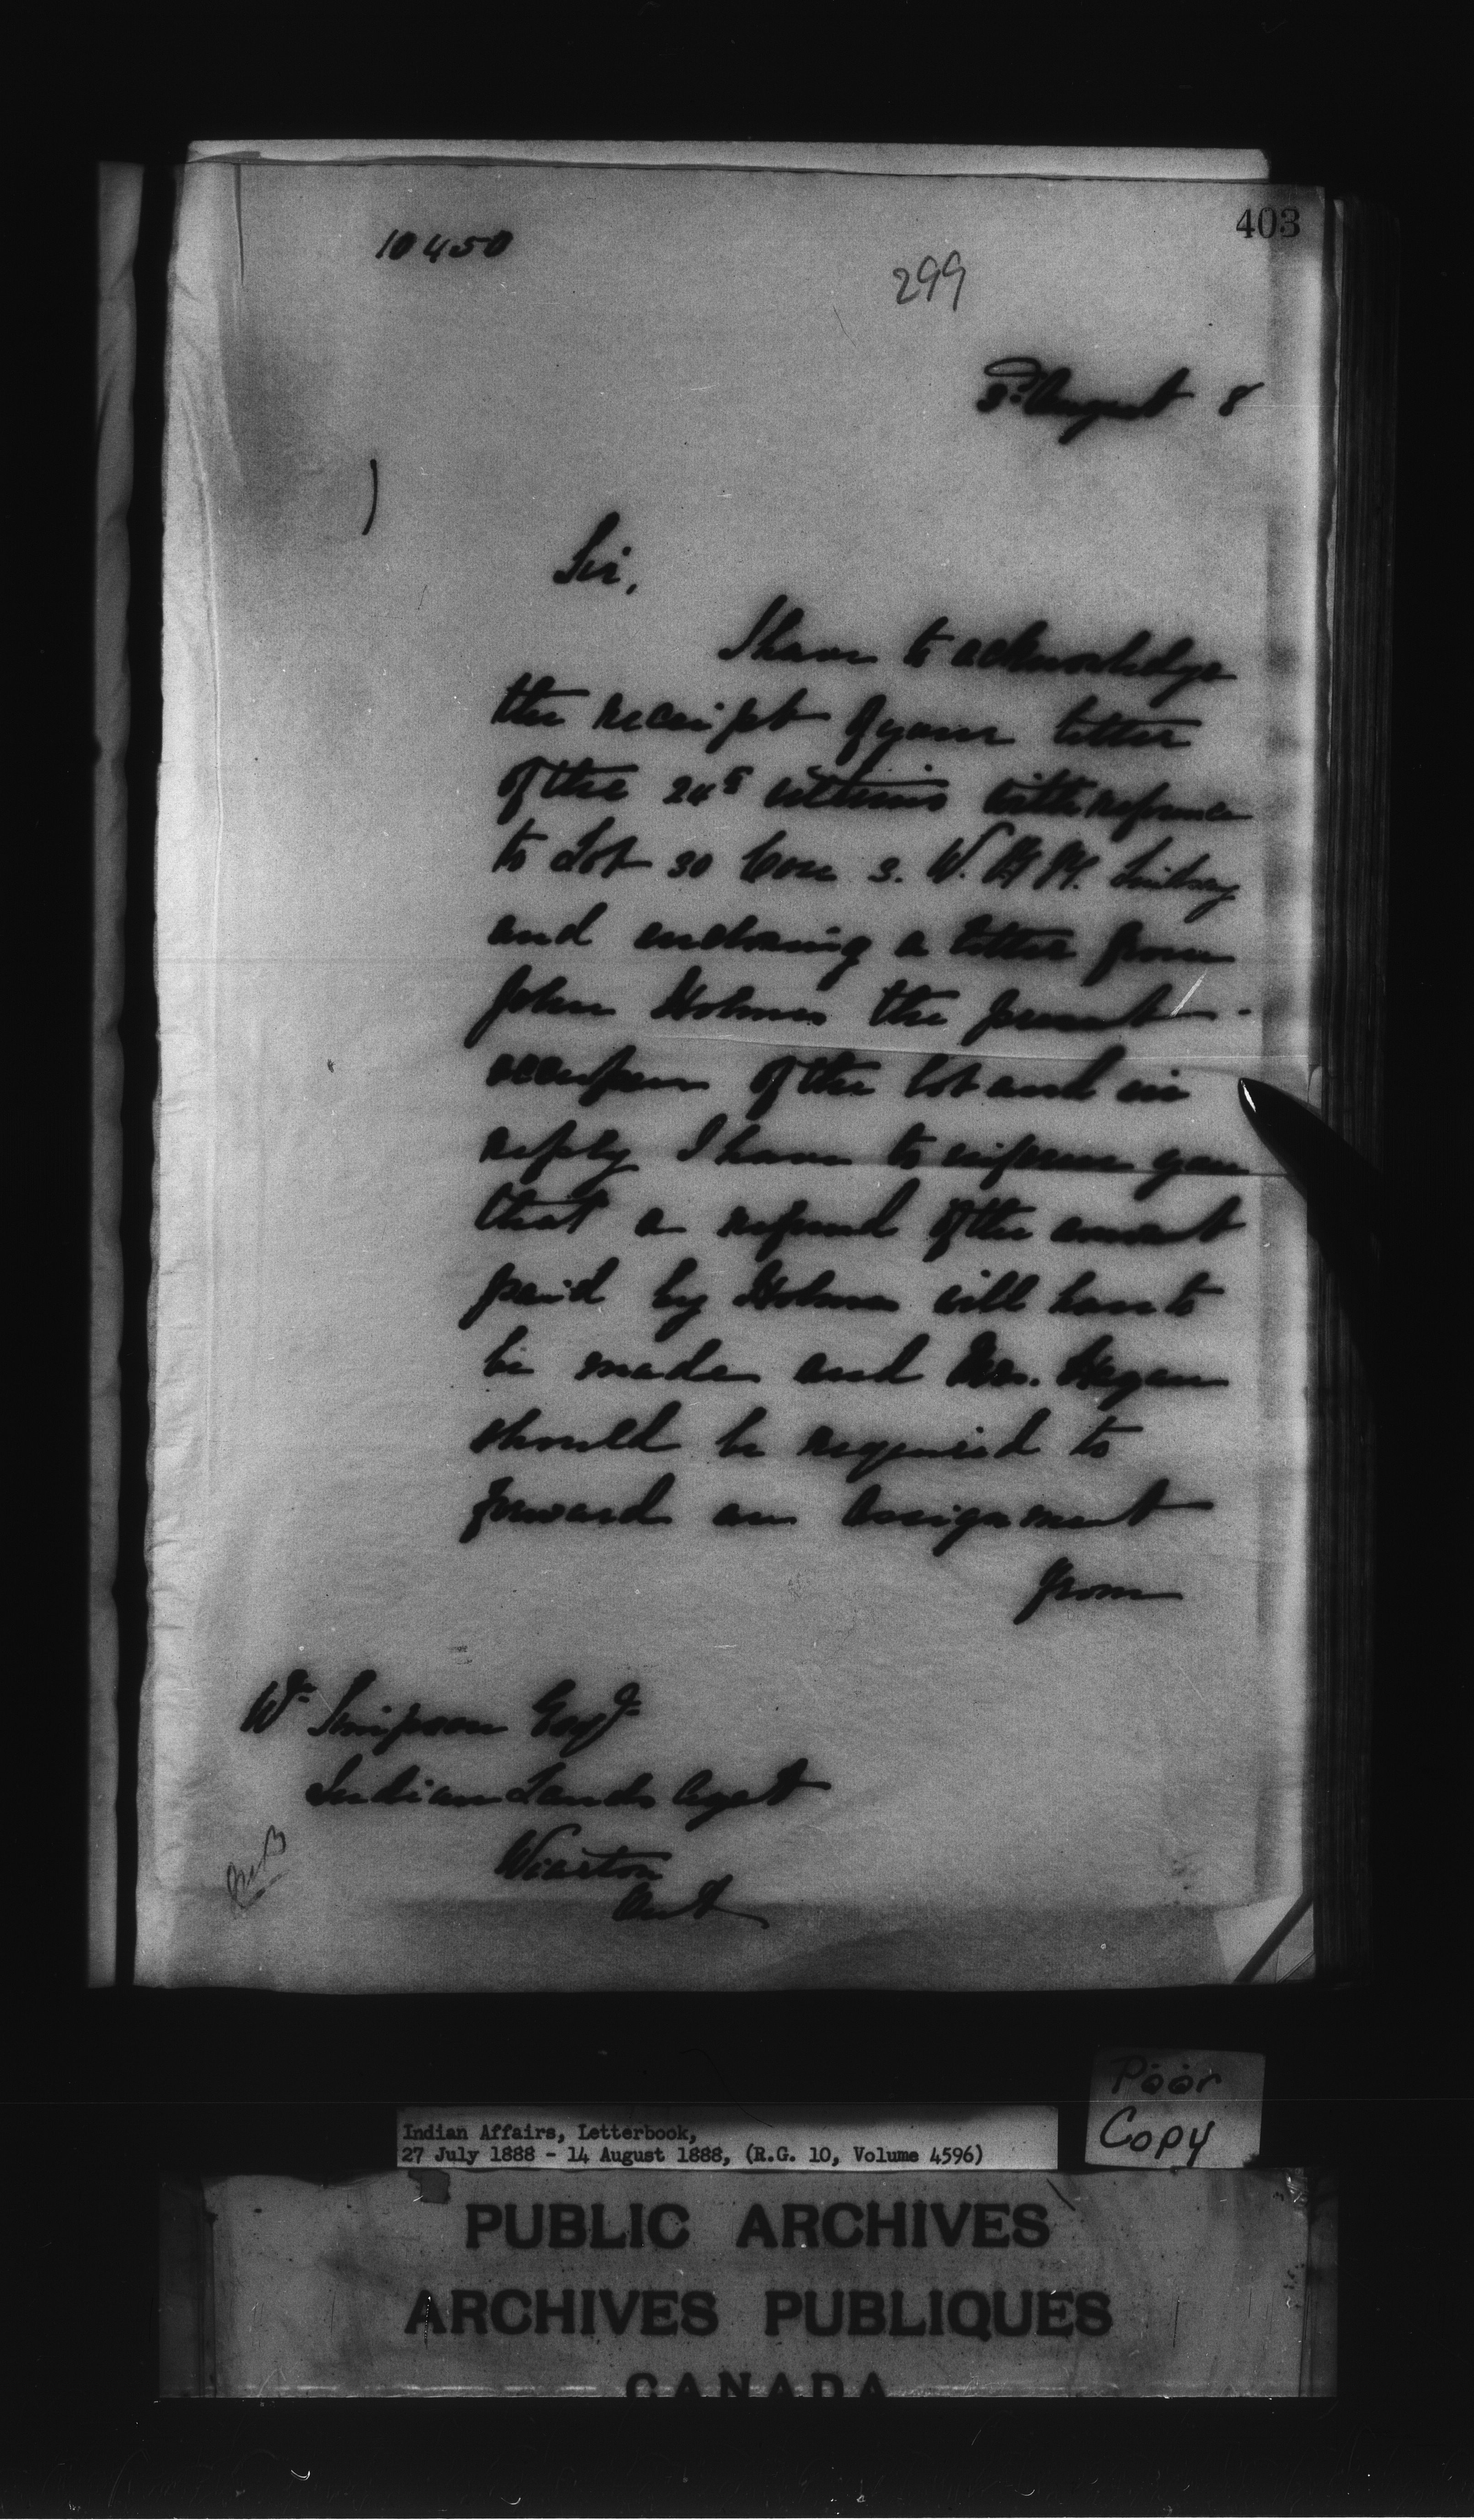 403
10450
299
3d. August 8
Sir,
I have to acknowledge
the receipt of your letter
of the 24th ultimo with reference
to Lot 30 Con 3. W. B. R. Lindsay
and enclosing a letter from
John Holmes the present
occupier of the lot and in
reply I have to inform you
that a refund of the amount
paid by Holmes will have to
be made and Mr. Hagan
should be required to
forward an assignment
from
Wm Simpson Esqr
Indian Lands Agent
Wiarton
Ont
Poor
Copy
Indian Affairs, Letterbook,
27 July 1888 - 14 August 1888, (R.G. 10, Volume 4596)
PUBLIC ARCHIVES
ARCHIVES PUBLIQUES
CANADA